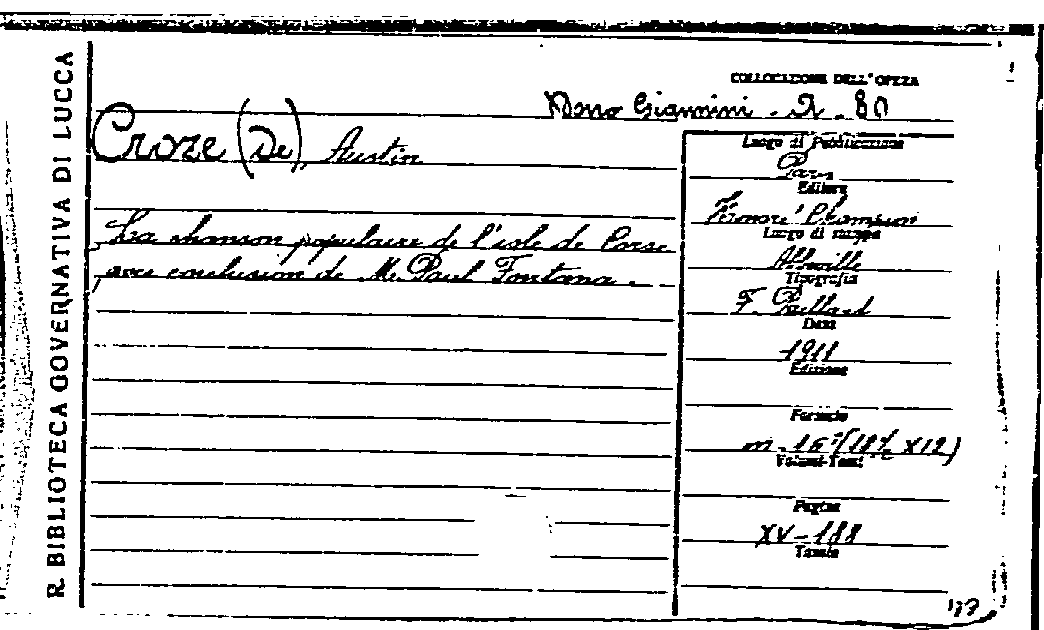 R. BIBLIOTECA GOVERNATIVA DI LUCCA
COLLOCAZIONE DELL'OPERA
Dono Giannini - 2 - 80
Croze (De), Austin
La chanson populaire de l'isle de Corse
avec conclusion de M. Paul Fontana.
Luogo di Pubblicazione
Paris
Editore
Honoré Champion
Luogo di stampa
Abbeville
Tipografia
F. Paillard
Data
1911
Edizione
Formato
in-16° (18½ X12)
Volumi-Tomi
Pagine
XV-188
Tavole